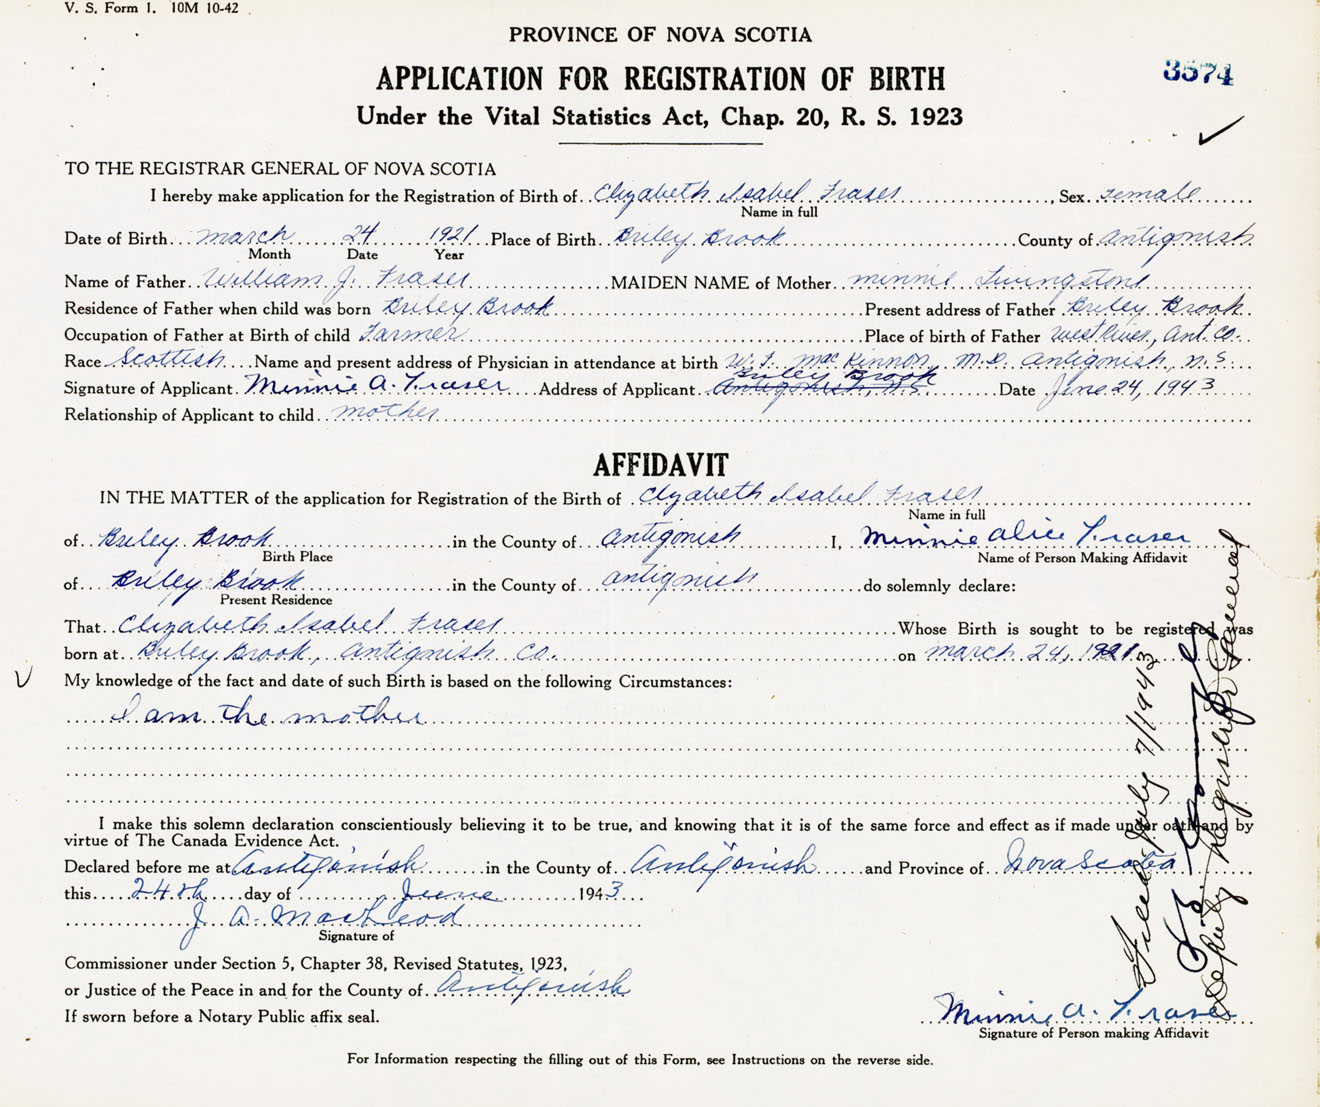 V. S. Form 1. 10M 10-42
PROVINCE OF NOVA SCOTIA
3574
APPLICATION FOR REGISTRATION OF BIRTH
Under the Vital Statistics Act, Chap. 20, R. S. 1923
TO THE REGISTRAR GENERAL OF NOVA SCOTIA
I hereby make application for the Registration of Birth of Elizabeth Isabel Fraser, Sex Female
Name in full
Date of Birth March 24 1921 Place of Birth Briley Brook County of Antigonish
Month Date Year
Name of Father William J. Fraser MAIDEN NAME of Mother Minnie Livingstone
Residence of Father when child was born Briley Brook Present address of Father Briley Brook
Occupation of Father at Birth of child Farmer Place of birth of Father West River, Ant. Co.
Race Scottish Name and present address of Physician in attendance at birth W. F. MacKinnon, M.D. Antigonish, N.S.
Briley Brook
Signature of Applicant Minnie A. Fraser Address of Applicant Antigonish, N.S. Date June 24, 1943
Relationship of Applicant to child mother
AFFIDAVIT
IN THE MATTER of the application for Registration of the Birth of Elizabeth Isabel Fraser
Name in full
of Briley Brook in the County of Antigonish I, Minnie Alice Fraser
Birth Place Name of Person Making Affidavit
of Briley Brook in the County of Antigonish do solemnly declare:
Present Residence
That Elizabeth Isabel Fraser Whose Birth is sought to be registered was
born at Briley Brook, Antigonish Co. on March 24, 1921
My knowledge of the fact and date of such Birth is based on the following Circumstances:
I am the mother
I make this solemn declaration conscientiously believing it to be true, and knowing that it is of the same force and effect as if made under oath and by
virtue of The Canada Evidence Act.
Declared before me at Antigonish in the County of Antigonish and Province of Nova Scotia
this 24th day of June 1943
J. A. MacLeod
Signature of
Commissioner under Section 5, Chapter 38, Revised Statutes, 1923,
or Justice of the Peace in and for the County of Antigonish
If sworn before a Notary Public affix seal.
Minnie A. Fraser
Signature of Person making Affidavit
For Information respecting the filling out of this Form, see Instructions on the reverse side.
Filed July 7/1943
Deputy Registrar General